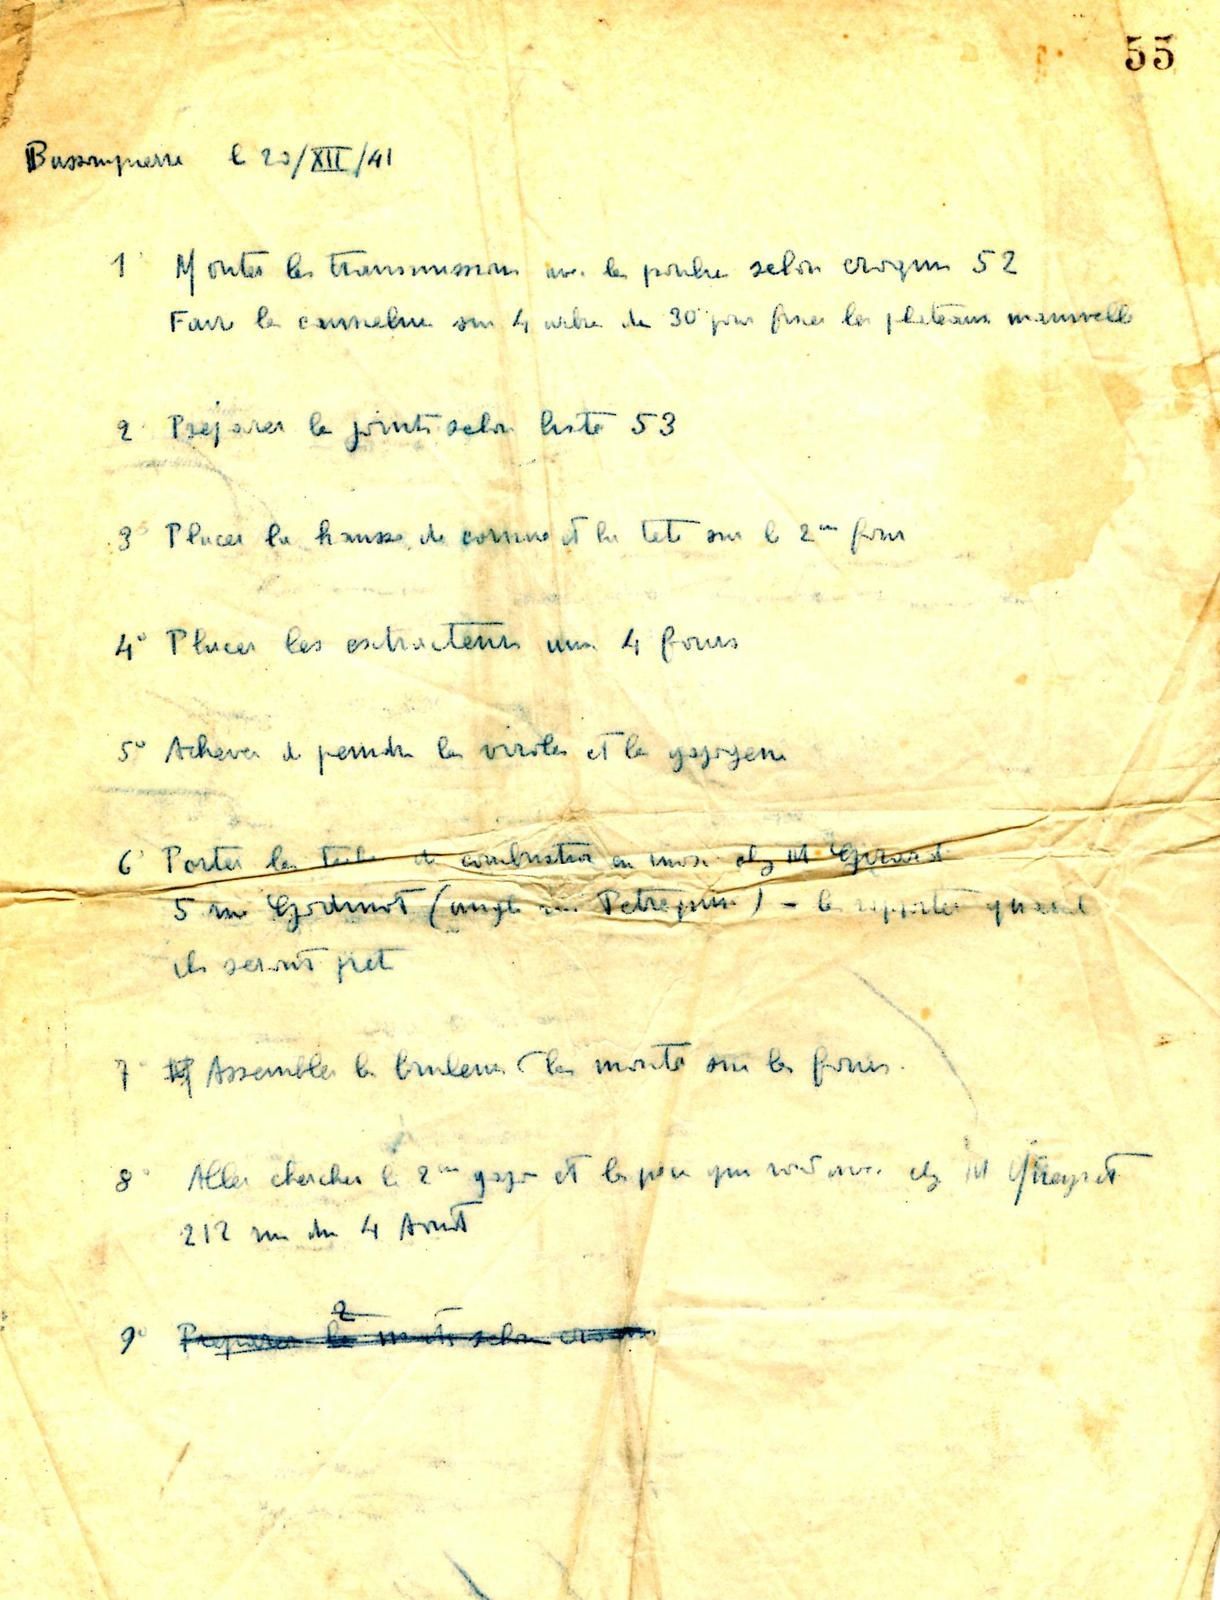 55
Bassompierre le 20/XII/41
1° Monter les transmissions avec les poulies selon croquis 52
Faire la cannelure sur 4 arbre de 30 pour fixer les plateaux manivelle
2° Préparer les joints selon liste 53
3° Placer la hausse de cornue et la tete sur le 2me four
4° Placer les extracteurs aux 4 fours
5° Achever de peindre les viroles et les gazogene
6° Porter les de combustion en chez M Girard
5 rue Godinot (angle rue Petrequin) - les rapporter quand
ils seront pret
7° Assembler les bruleurs les monter sur les fours.
8° Aller chercher le 2me gazo et les qui vont avec chez M
212 rue du 4 Aout
9° Preparer les 2 selon croquis